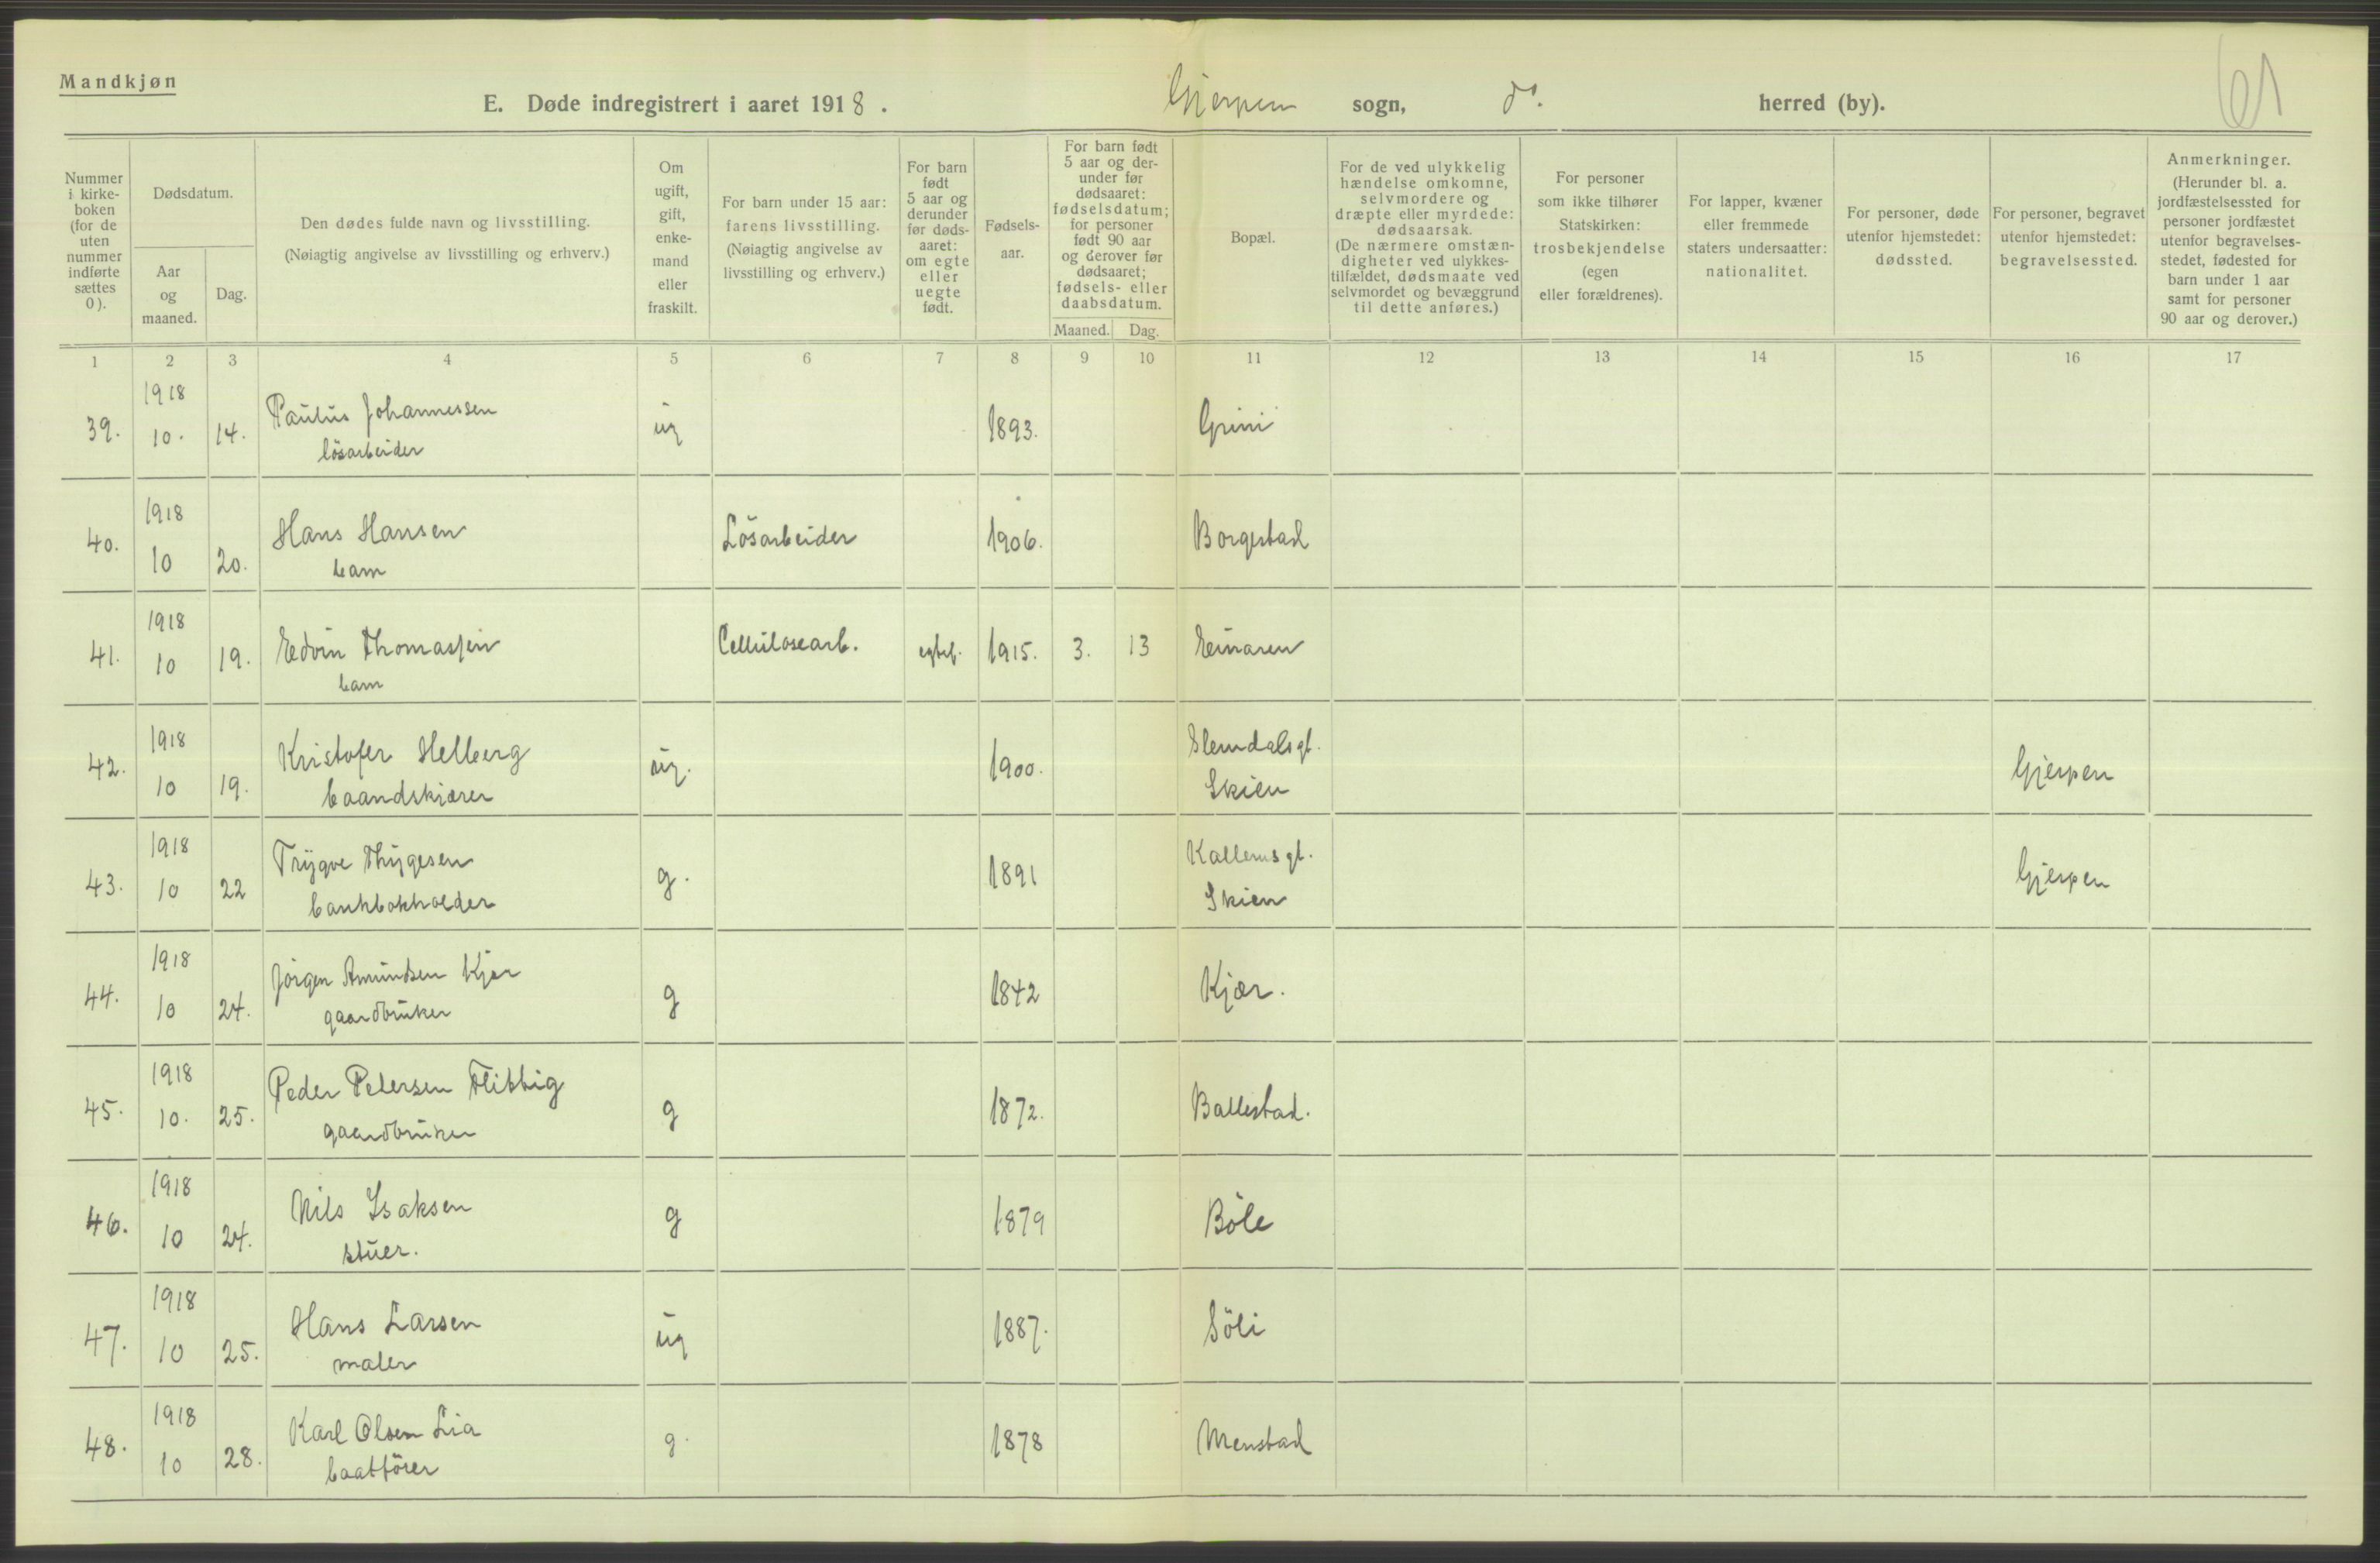 Mandkjøn
61
E. Døde indregistrert i aaret 1918. Gjerpen sogn, do. herred (by).
Nummer i kirke-boken (for de uten nummer indførte sættes 0).
Dødsdatum.
Aar og maaned.
Dag.
Den dødes fulde navn og livsstilling.
(Nøiagtig angivelse av livsstilling og erhverv.)
Om ugift, gift, enke-mand eller fraskilt.
For barn under 15 aar: farens livsstilling.
(Nøiagtig angivelse av livsstilling og erhverv.)
For barn født 5 aar og derunder før døds-aaret: om egte eller uegte født.
Fødsels-aar.
For barn født 5 aar og der-under før dødsaaret: fødselsdatum; for personer født 90 aar og derover før dødsaaret; fødsels- eller daabsdatum.
Maaned. Dag.
Bopæl.
For de ved ulykkelig hændelse omkomne, selvmordere og dræpte eller myrdede: dødsaarsak.
(De nærmere omstæn-digheter ved ulykkes-tilfældet, dødsmaate ved selvmordet og bevæggrund til dette anføres.)
For personer som ikke tilhører Statskirken: trosbekjendelse (egen eller forældrenes).
For lapper, kvæner eller fremmede staters undersaatter: nationalitet.
For personer, døde utenfor hjemstedet: dødssted.
For personer, begravet utenfor hjemstedet: begravelsessted.
Anmerkninger.
(Herunder bl. a. jordfæstelsessted for personer jordfæstet utenfor begravelses-stedet, fødested for barn under 1 aar samt for personer 90 aar og derover.)
1 2 3 4 5 6 7 8 9 10 11 12 13 14 15 16 17
1918
39. 10. 14. Paulus Johannessen ug 1893. Grini
lösarbeider
1918
40. 10 20. Hans Hansen Lösarbeider 1906. Borgestad
barn
1918
41. 10 19. Edvin Thomassen Cellulosearb. egtef. 1915. 3. 13 Einaren
barn
1918
42. 10 19. Kristofer Helberg ug. 1900. Slemdalsgt. Skien Gjerpen
baandskjærer
1918
43. 10 22 Trygve Thygesen g. 1891 Kallemsgt. Skien Gjerpen
bankbokholder
1918
44. 10 24. Jörgen Amundsen Kjær g 1842 Kjær.
gaardbruker
1918
45. 10. 25. Peder Petersen Flittig g 1872. Ballestad.
gaardbruker
1918
46. 10 24. Nils Isaksen g 1879 Böle
stuer.
1918
47. 10 25. Hans Larsen ug 1887. Söli
maler
1918
48. 10 28. Karl Olsen Lia g. 1878 Menstad
baatförer